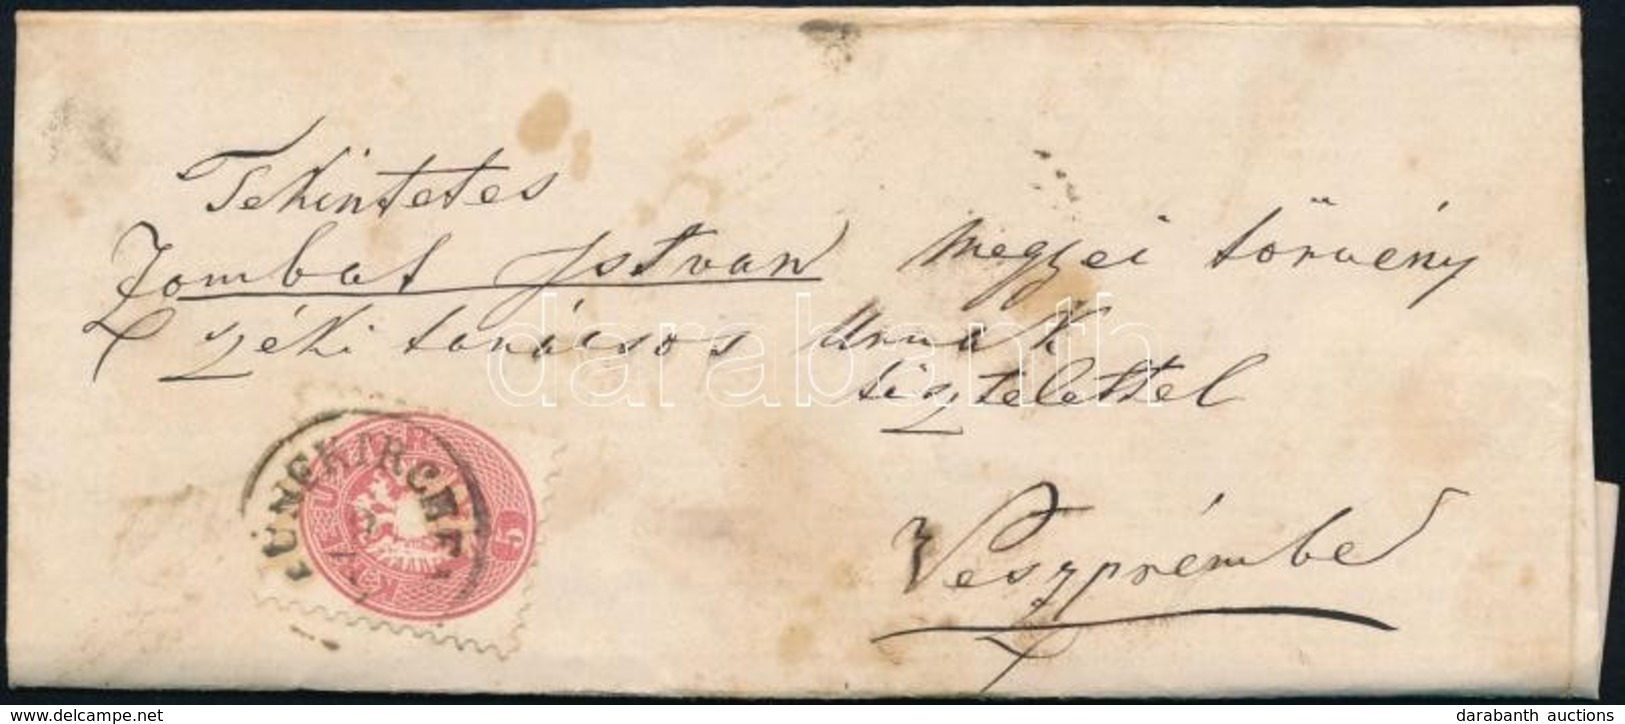 Tekintetes
Zombat Istvan megyei törvény
széki tanácsos Urnak
tisztelettel
Veszprémbe
FÜNFKIRCHEN
KREUZER
5
darabanth
delcampe.net
darabanth auctions